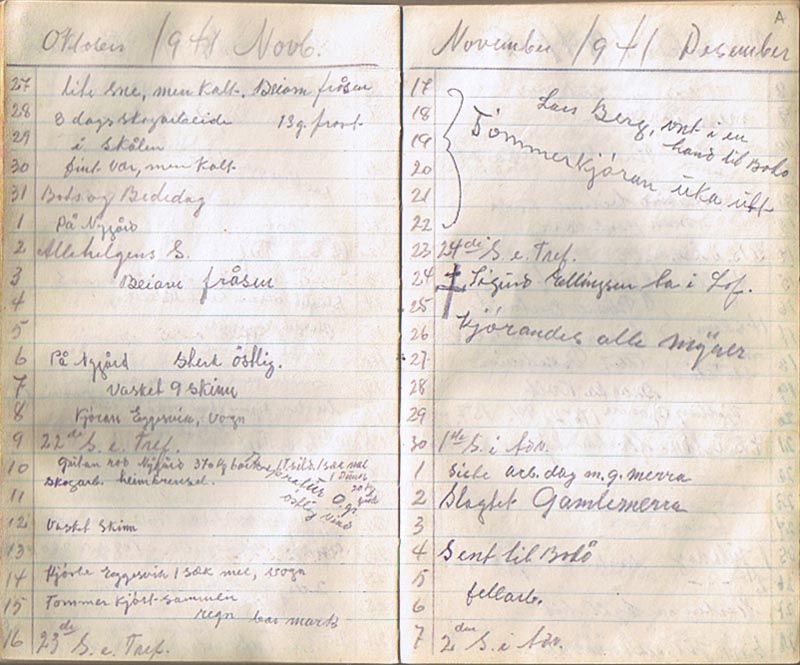 Oktober 1941 Novb.
27 lite sne, men kalt. Beiarn fråsen
28 3 dags skogarbeide 13 g. frost
29 i Skålen
30 fint vær, men kalt
31 Bods og Bededag
1 På Nygård
2 Allehelgens S.
3 Beiarn fråsen
4
5
6 På Nygård Sterk östlig.
7 Vasket 9 skinn
8 Kjöran Eggesvik, vogn
9 22de S. e. Tref.
10 Nygård 370 kg 1 sæk mel
skogarb. heimbrensel.
11 O. gr.
östlig vind
12 Vasket Skinn
13
14 Kjörte Eggesvik 1 sæk mel, vogn
15 Tømmer kjört sammen
regn bar mark
16 23de S. e. Tref.
November 1941 Desember
A
17
18 Lars Berg, vont i en
hand til Bodö
19 Tömmerkjöran uka utt
20
21
22
23 24de S. e. Tref.
24 Sigurd Ellingsen la i Lof.
25
26 Kjörandes alle myrer
27
28
29
30 1ste S. i Adv.
1 siste arb. dag m. g. merra
2 Slagtet Gamlemerra
3
4 Sent til Bodö
5
fellarb.
6
7 2den S. i Adv.